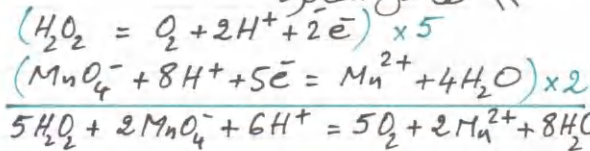 (H₂O₂ = O₂ + 2H⁺ + 2ē) × 5
(MnO₄⁻ + 8H⁺ + 5ē = Mn²⁺ + 4H₂O) × 2
5H₂O₂ + 2MnO₄⁻ + 6H⁺ = 5O₂ + 2Mn²⁺ + 8H₂O